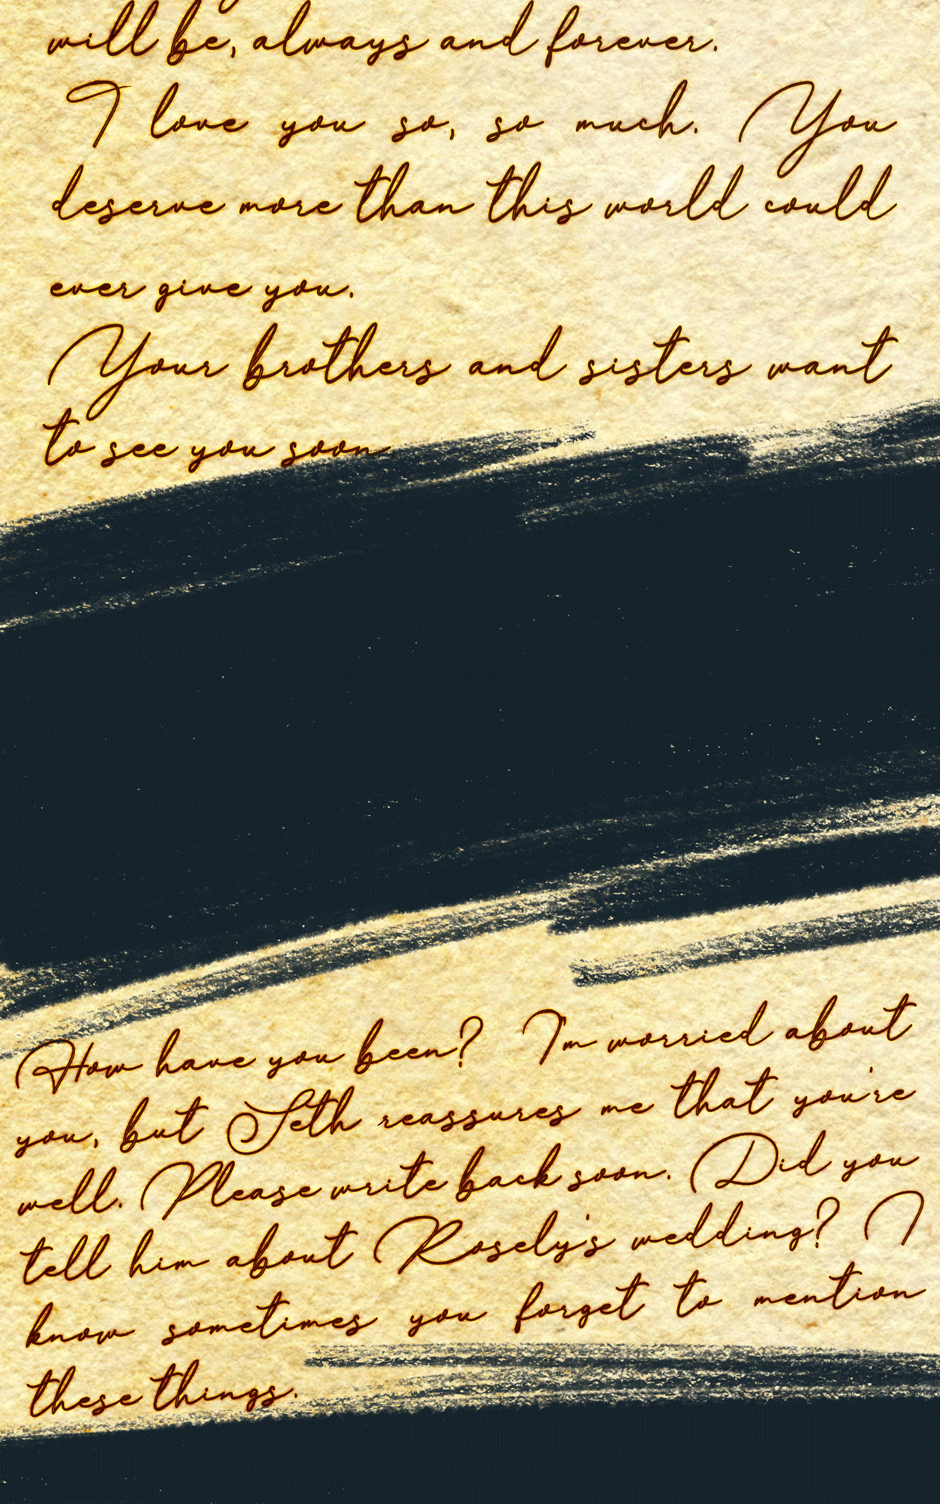 will be, always and forever.
I love you so, so much. You
deserve more than this world could
ever give you.
Your brothers and sisters want
to see you soon
How have you been? I'm worried about
you, but Seth reassures me that you're
well. Please write back soon. Did you
tell him about Rosely's wedding? I
know sometimes you forget to mention
these things.